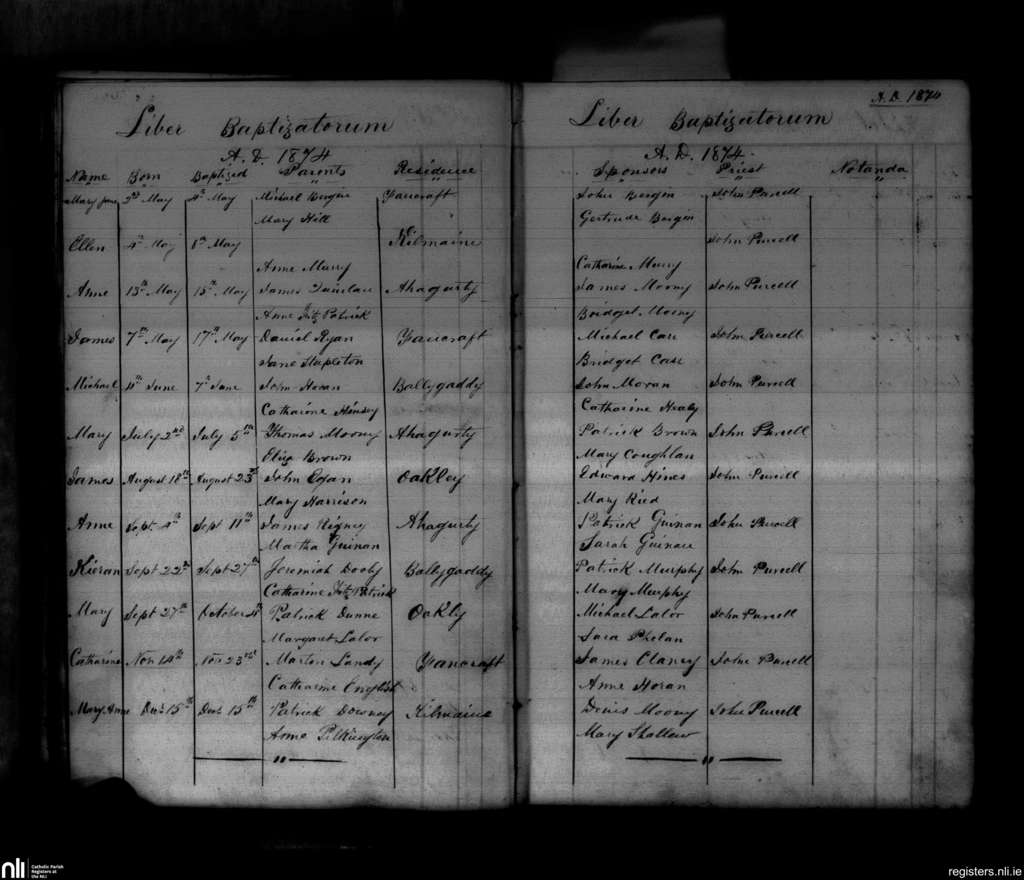 A.D. 1874
Liber Baptizatorum
A.D. 1874
Name Born Baptized Parents Residence
Mary Jane 2nd May 4th May Michael Bergin Fancraft
Mary Hill
Ellen 4th May 8th May Kilmaine
Anne Murry
Anne 13th May 15th May James Quinlan Ahagurty
Anne Fitz Patrick
James 7th May 17th May Daniel Ryan Fancraft
Jane Stapleton
Michael 4th June 7th June John Horan Ballygaddy
Catharine
Mary July 2nd July 5th Thomas Moony Ahagurty
Eliza Brown
James August 18th August 23rd John Egan Oakley
Mary Harrison
Anne Sept. 4th Sept 11th James Rigney Ahagurty
Martha Guinan
Kieran Sept 22nd Sept 27th Jeremiah Dooly Ballygaddy
Catharine Fitz Patrick
Mary Sept 27th October 4th Patrick Dunne Oakly
Margaret Lalor
Catharine Nov 14th Nov 23rd Martin Landy Fancraft
Catharine English
Mary Anne Decr 15th Decr 15th Patrick Downey Kilmaine
Anne Pilkington
Liber Baptizatorum
A.D. 1874
Sponsors Priest Notanda
John Bergin John Purcell
Gertrude Bergin
John Purcell
Catharine Murry
James Moony John Purcell
Bridget Moony
Michael Case John Purcell
Bridget Case
John Moran John Purcell
Catharine Healy
Patrick Brown John Purcell
Mary Coughlan
Edward Hines John Purcell
Mary Ried
Patrick Guinan John Purcell
Sarah Guinan
Patrick Murphy John Purcell
Mary Murphy
Michael Lalor John Purcell
Sara Phelan
James Clancy John Purcell
Anne Horan
Denis Moony John Purcell
Mary Shallow
nli Catholic Parish
Registers at
the NLI
registers.nli.ie